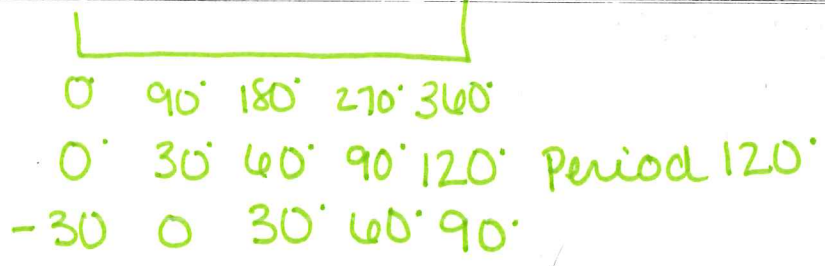 0° 90° 180° 270° 360°
0° 30° 60° 90° 120° Period 120°
-30 0 30° 60° 90°